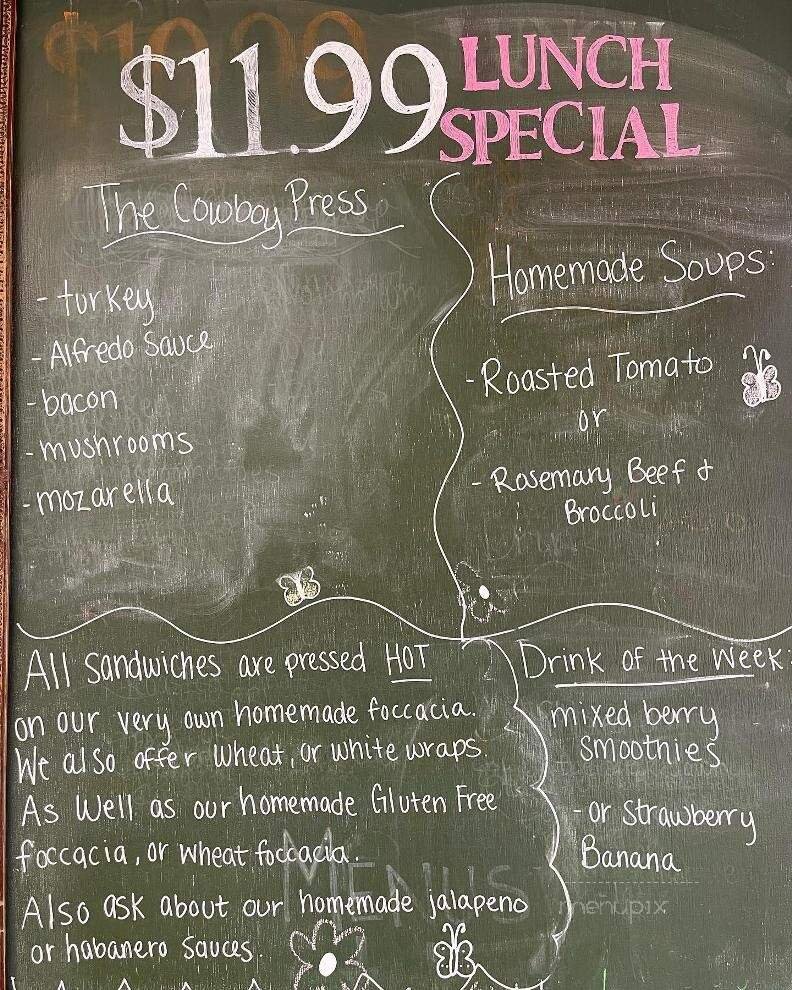 $11.99 LUNCH
SPECIAL
The Cowboy Press
- turkey
- Alfredo Sauce
- bacon
- mushrooms
- mozarella
Homemade Soups:
- Roasted Tomato
or
- Rosemary Beef &
Broccoli
All Sandwiches are pressed HOT
on our very own homemade foccacia.
We also offer Wheat, or white wraps.
As Well as our homemade Gluten Free
foccacia, or wheat foccacia.
Also ask about our homemade jalapeno
or habanero Sauces.
Drink of the Week:
mixed berry
Smoothies
- or Strawberry
Banana
MENUS
menupix